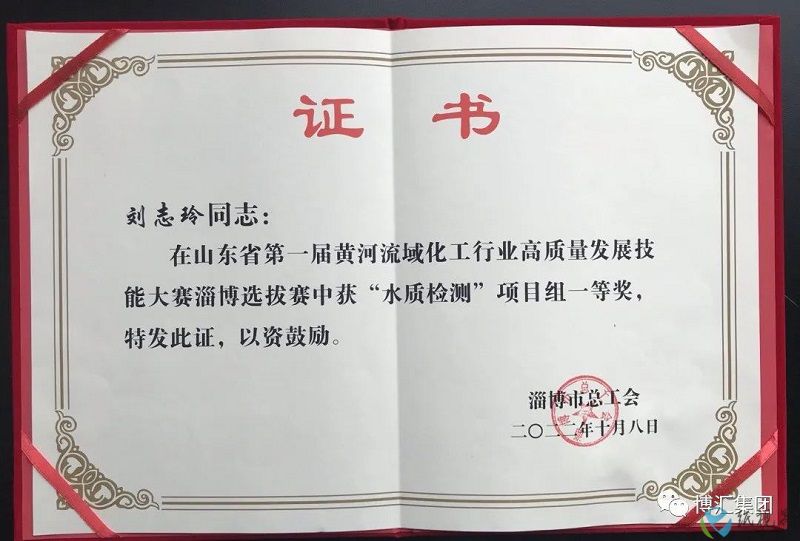 证书
刘志玲同志：
在山东省第一届黄河流域化工行业高质量发展技
能大赛淄博选拔赛中获“水质检测”项目组一等奖，
特发此证，以资鼓励。
淄博市总工会
二〇二二年十月八日
博汇集团